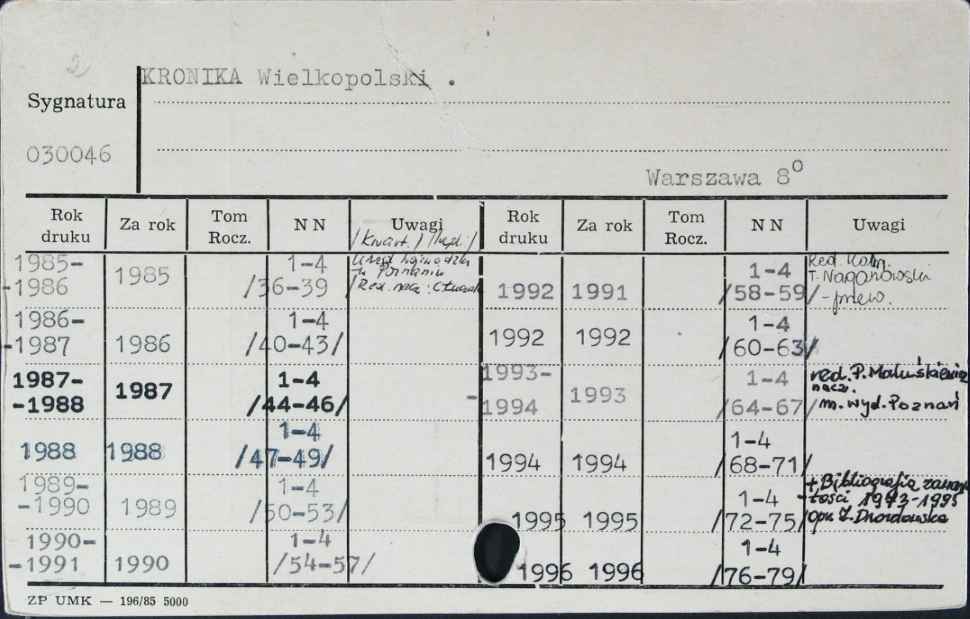 2
KRONIKA Wielkopolski .
Sygnatura
030046
Warszawa 8⁰
Rok druku Za rok Tom Rocz. N N Uwagi Rok druku Za rok Tom Rocz. N N Uwagi
/Kwart./
1985-
-1986 1985 1-4 /36-39
Urząd
w Poznaniu
/Red. nacz.:
1986-
-1987 1986 1-4 /40-43/
1987-
-1988 1987 1-4 /44-46/
1988 1988 1-4 /47-49/
1989-
-1990 1989 1-4 /50-53/
1990-
-1991 1990 1-4 /54-57/
1992 1991 1-4 /58-59/
Red.
T. Naganowski
1992 1992 1-4 /60-63/
1993-
-1994 1993 1-4 /64-67/
red. P. Maluśkiewicz
nacz.
m. wyd. Poznań
1994 1994 1-4 /68-71/
1995 1995 1-4 /72-75/
+ Bibliografia zawar-
tości 1973-1995
Opr.
1996 1996 1-4 /76-79/
ZP UMK — 196/85 5000